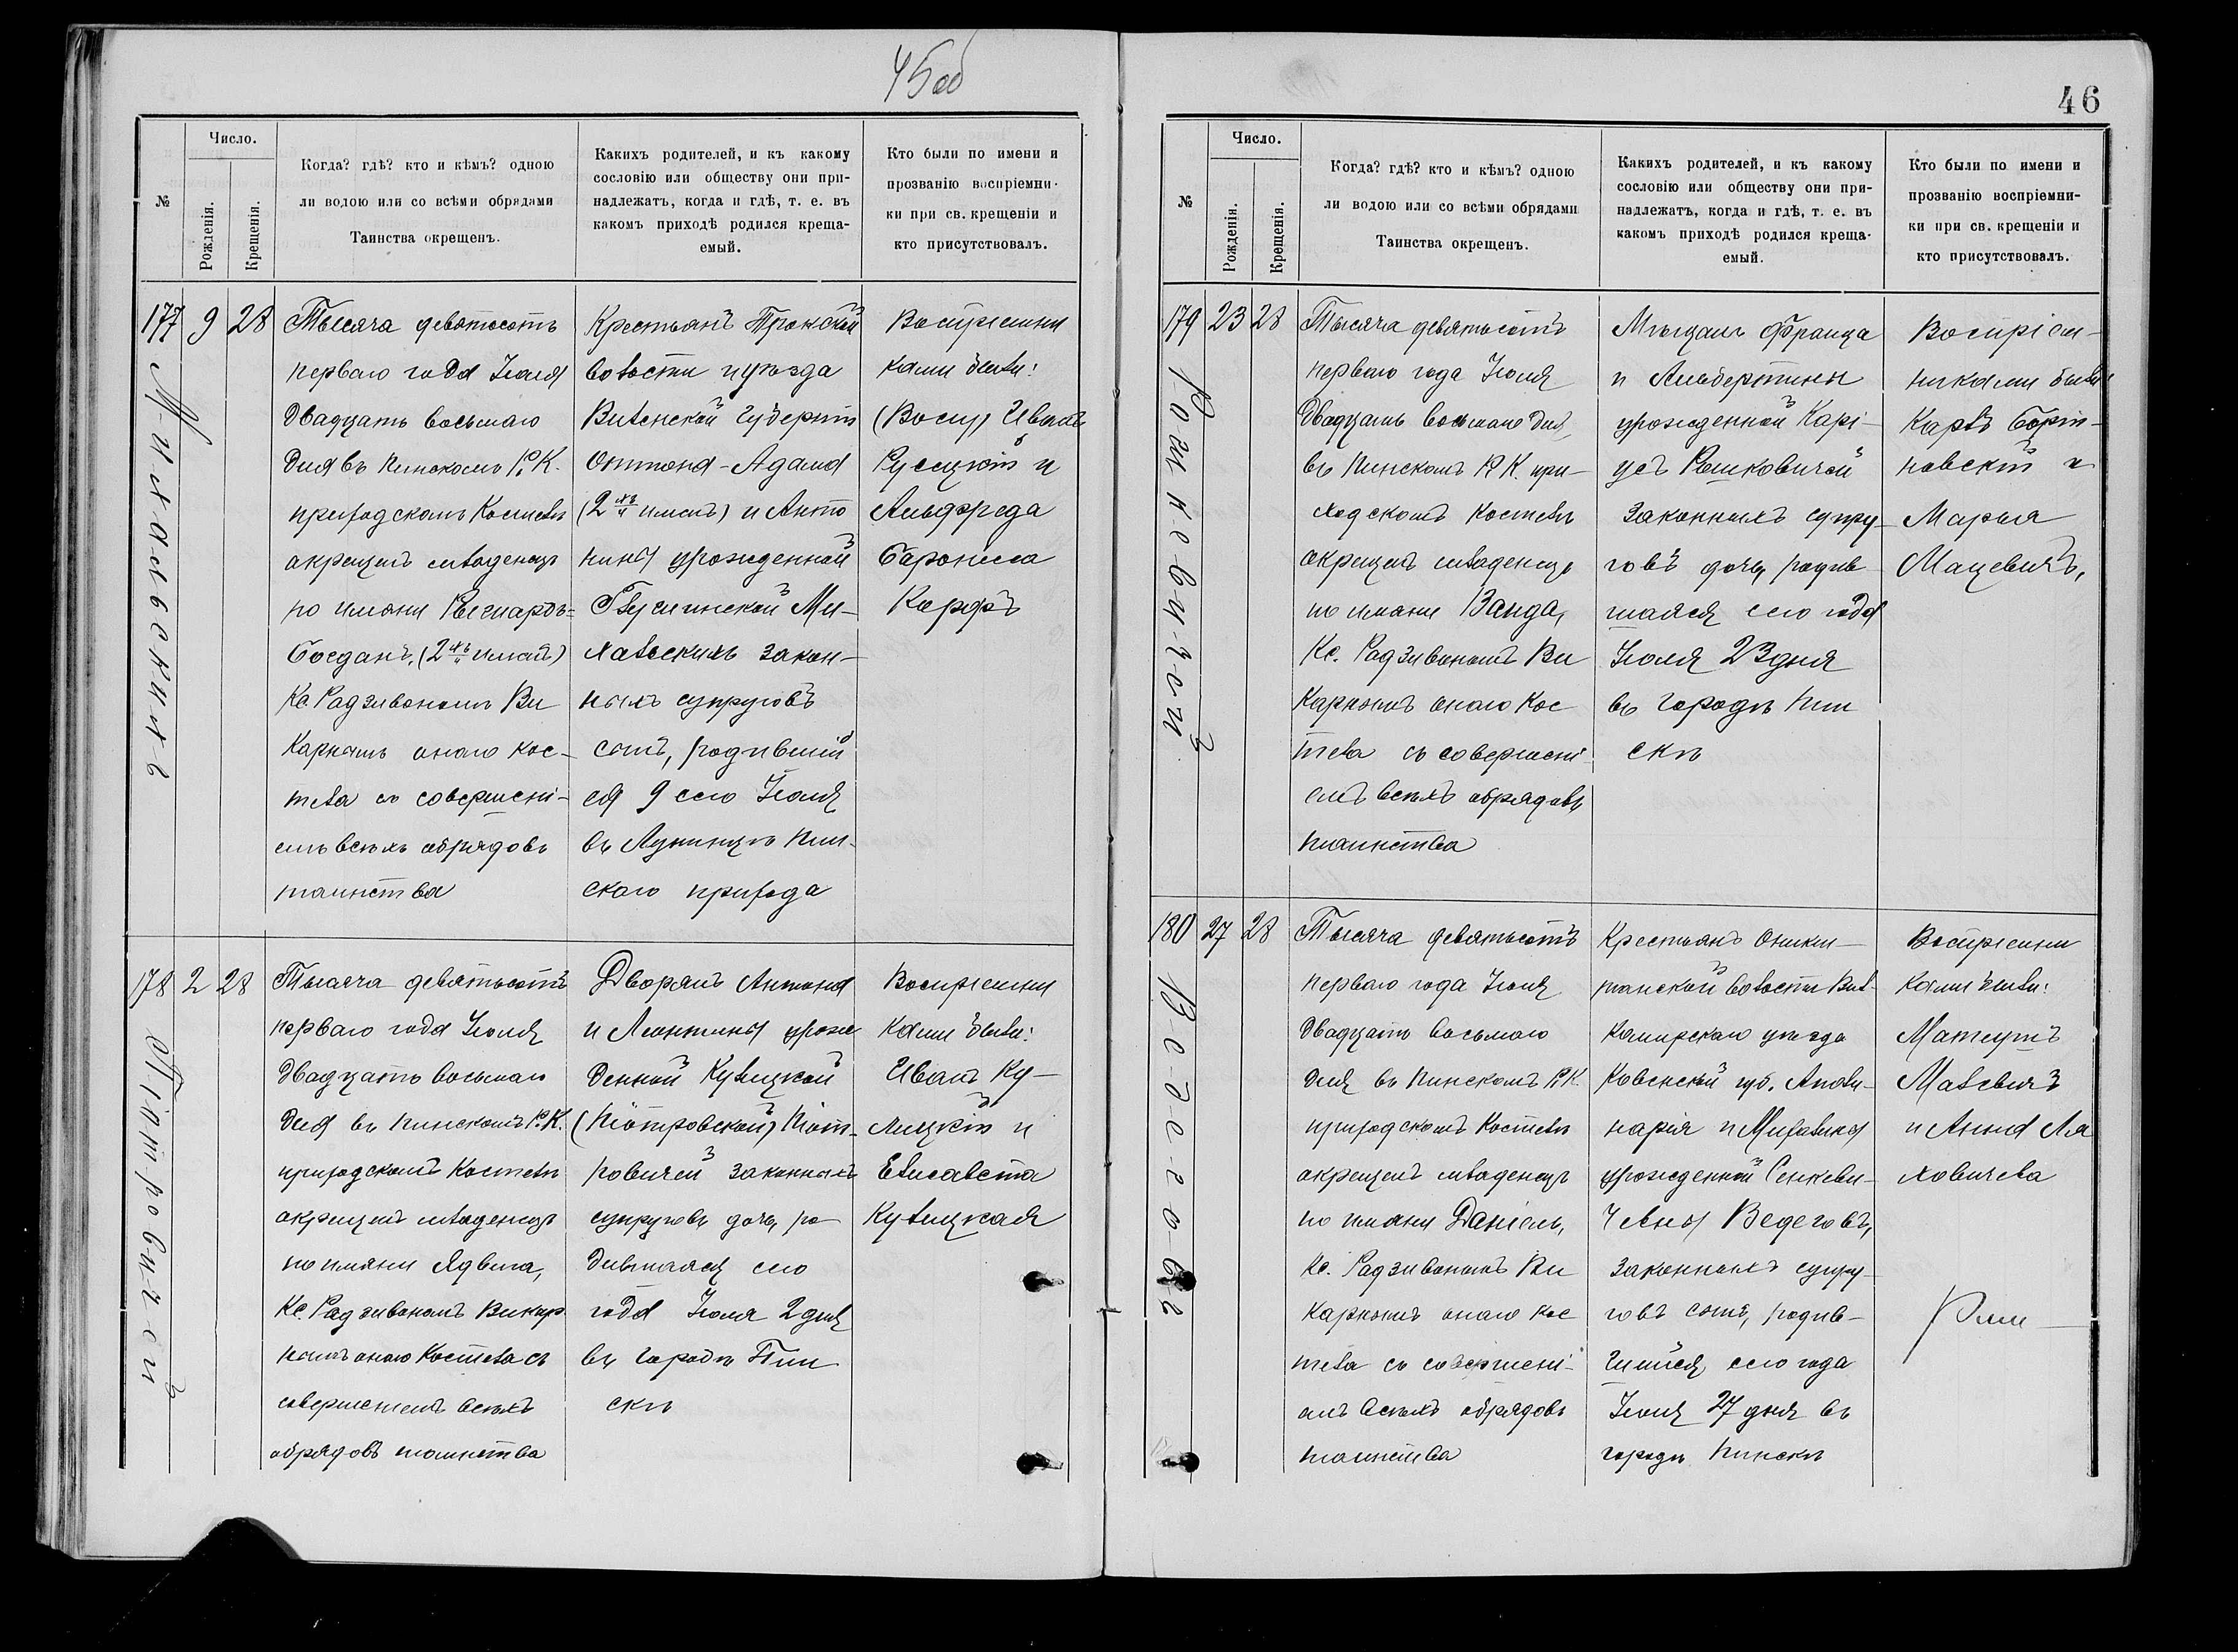 45 об
№
Число.
Рожденія.
Крещенія.
Когда? гдѣ? кто и кѣмъ? одною
ли водою или со всѣми обрядами
Таинства окрещенъ.
Какихъ родителей, и къ какому
сословію или обществу они при-
надлежатъ, когда и гдѣ, т. е. въ
какомъ приходѣ родился креща-
емый.
Кто были по имени и
прозванію воспріемни-
ки при св. крещеніи и
кто присутствовалъ.
177
9
28
Михальскихъ
Тысяча девятьсотъ
перваго года Іюля
Двадцать восьмаго
дня въ Пинскомъ Р. К.
приходскомъ Костелѣ
окрещенъ младенецъ
по имени
Богданъ, (2хъ именъ)
Кс. Радзивономъ Ви
карнымъ онаго кос-
тела со совершені-
емъ всѣхъ обрядовъ
таинства
Крестьянъ Трокской
волости и уѣзда
Виленской Губерніи
Оттона-Адама
(2хъ именъ) и Анто
нины урожденной
Ми-
хальскихъ закон-
ныхъ супруговъ
сынъ, родившій
ся 9 сего Іюля
въ Лунинцѣ Пин-
скаго прихода
Воспріемни
ками были:
Иванъ
Русецкій и
Альфреда
Баронесса
Карфъ
178
2
28
Піотровичей
Тысяча девятьсотъ
перваго года Іюля
Двадцать восьмаго
дня въ Пинскомъ Р. К.
приходскомъ Костелѣ
окрещенъ младенецъ
по имени Ядвига,
Кс. Радзивономъ Викар
нымъ онаго Костела съ
совершеніемъ всѣхъ
обрядовъ таинства
Дворянъ Антона
и Леонтины урож
денной Кулицкой
(Піотровской) Піот-
ровичей законныхъ
супруговъ дочь, ро
дившаяся сего
года Іюля 2 дня
въ городѣ Пин
скѣ
Воспріемни
ками были:
Иванъ Ку-
лицкій и
Елисавета
Кулицкая
46
№
Число.
Рожденія.
Крещенія.
Когда? гдѣ? кто и кѣмъ? одною
ли водою или со всѣми обрядами
Таинства окрещенъ.
Какихъ родителей, и къ какому
сословію или обществу они при-
надлежатъ, когда и гдѣ, т. е. въ
какомъ приходѣ родился креща-
емый.
Кто были по имени и
прозванію воспріемни-
ки при св. крещеніи и
кто присутствовалъ.
179
23
28
Тысяча девятьсотъ
перваго года Іюля
Двадцать восьмаго дня,
въ Пинскомъ Р. К. при-
ходскомъ Костелѣ
окрещенъ младенецъ
по имени Ванда,
Кс. Радзивономъ Ви
карнымъ онаго Кос
тела со совершені-
емъ всѣхъ обрядовъ
таинства
Мѣщанъ Франца
и Альбертины
урожденной Карі-
усъ
законныхъ супру-
говъ дочь, родив
шаяся сего года
Іюля 23 дня
въ городѣ Пин
скѣ
Воспріем-
никами были
Карлъ Борт-
новскій и
Марья
Мацевичъ,
180
27
28
Ведеговъ
Тысяча девятьсотъ
перваго года Іюля
Двадцать восьмаго
дня въ Пинскомъ Р. К.
приходскомъ Костелѣ
окрещенъ младенецъ
по имени Даніель,
Кс. Радзивономъ Ви
карнымъ онаго кос
тела со совершені-
емъ всѣхъ обрядовъ
таинства
Крестьянъ Оникш-
танской волости Вил-
комирскаго уѣзда
Ковенской губ. Аполи-
нарія и
урожденной Сенкеви-
Ведеговъ,
законныхъ супру-
говъ сынъ, родив-
шійся сего года
Іюля 27 дня въ
городѣ Пинскѣ
Воспріемни
ками были:
Матеушъ
Малевичъ
и Анна Ля
ховичева